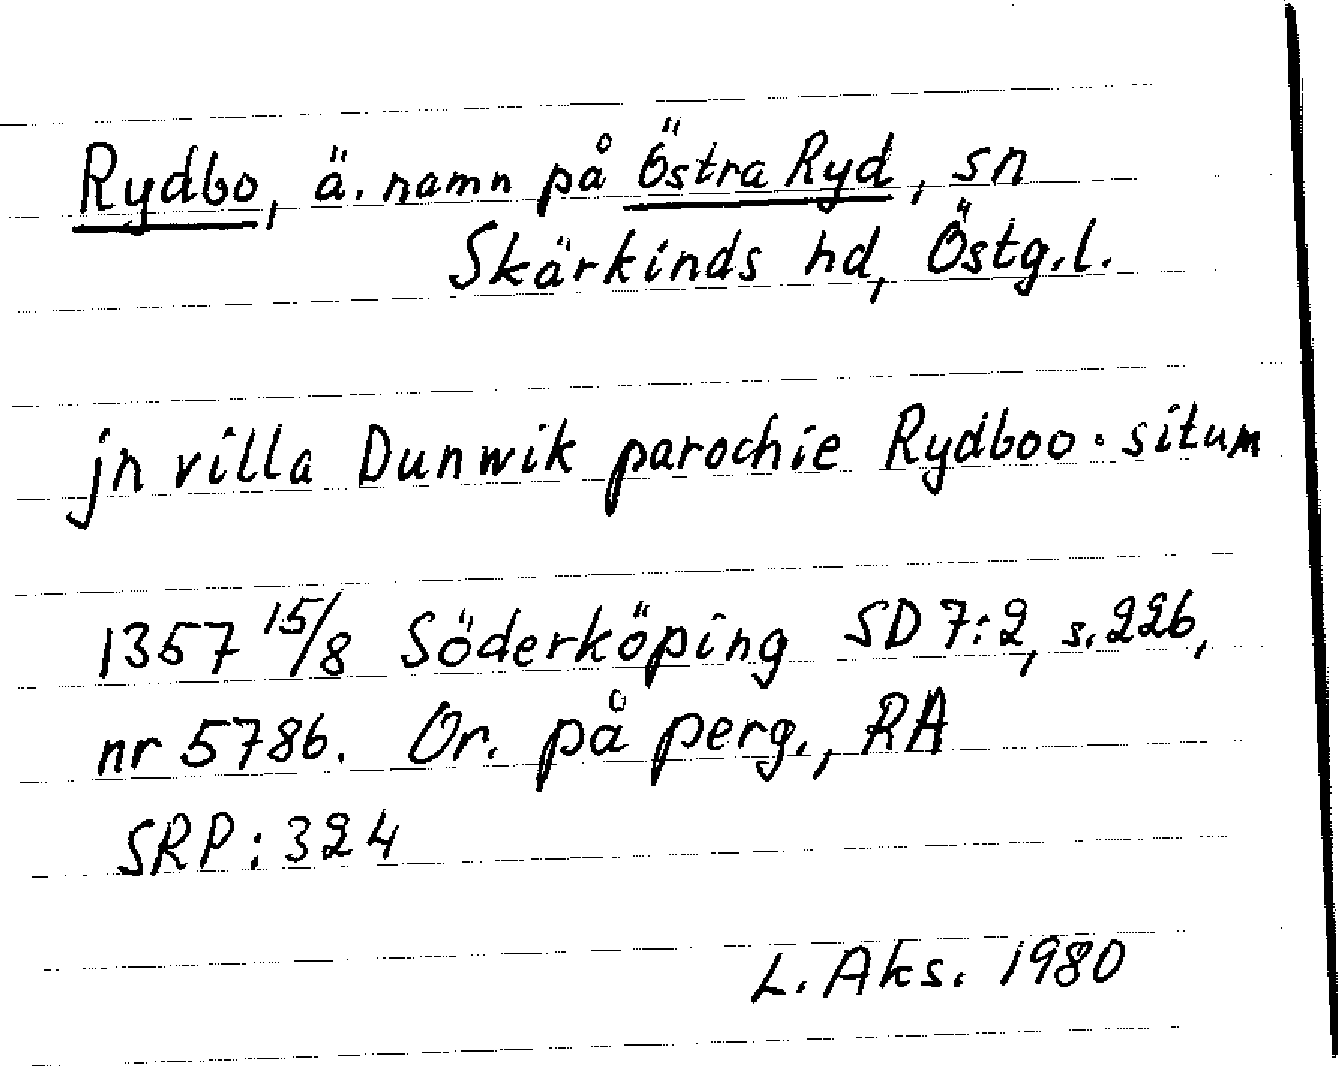 Rydbo, ä. namn på Östra Ryd, sn
Skärkinds hd, Östg.l.
jn villa Dunwik parochie Rydboo · situm
1357 15/8 Söderköping SD 7:2, s. 226,
nr 5786. Or. på perg., RA
SRP: 324
L. Aks. 1980